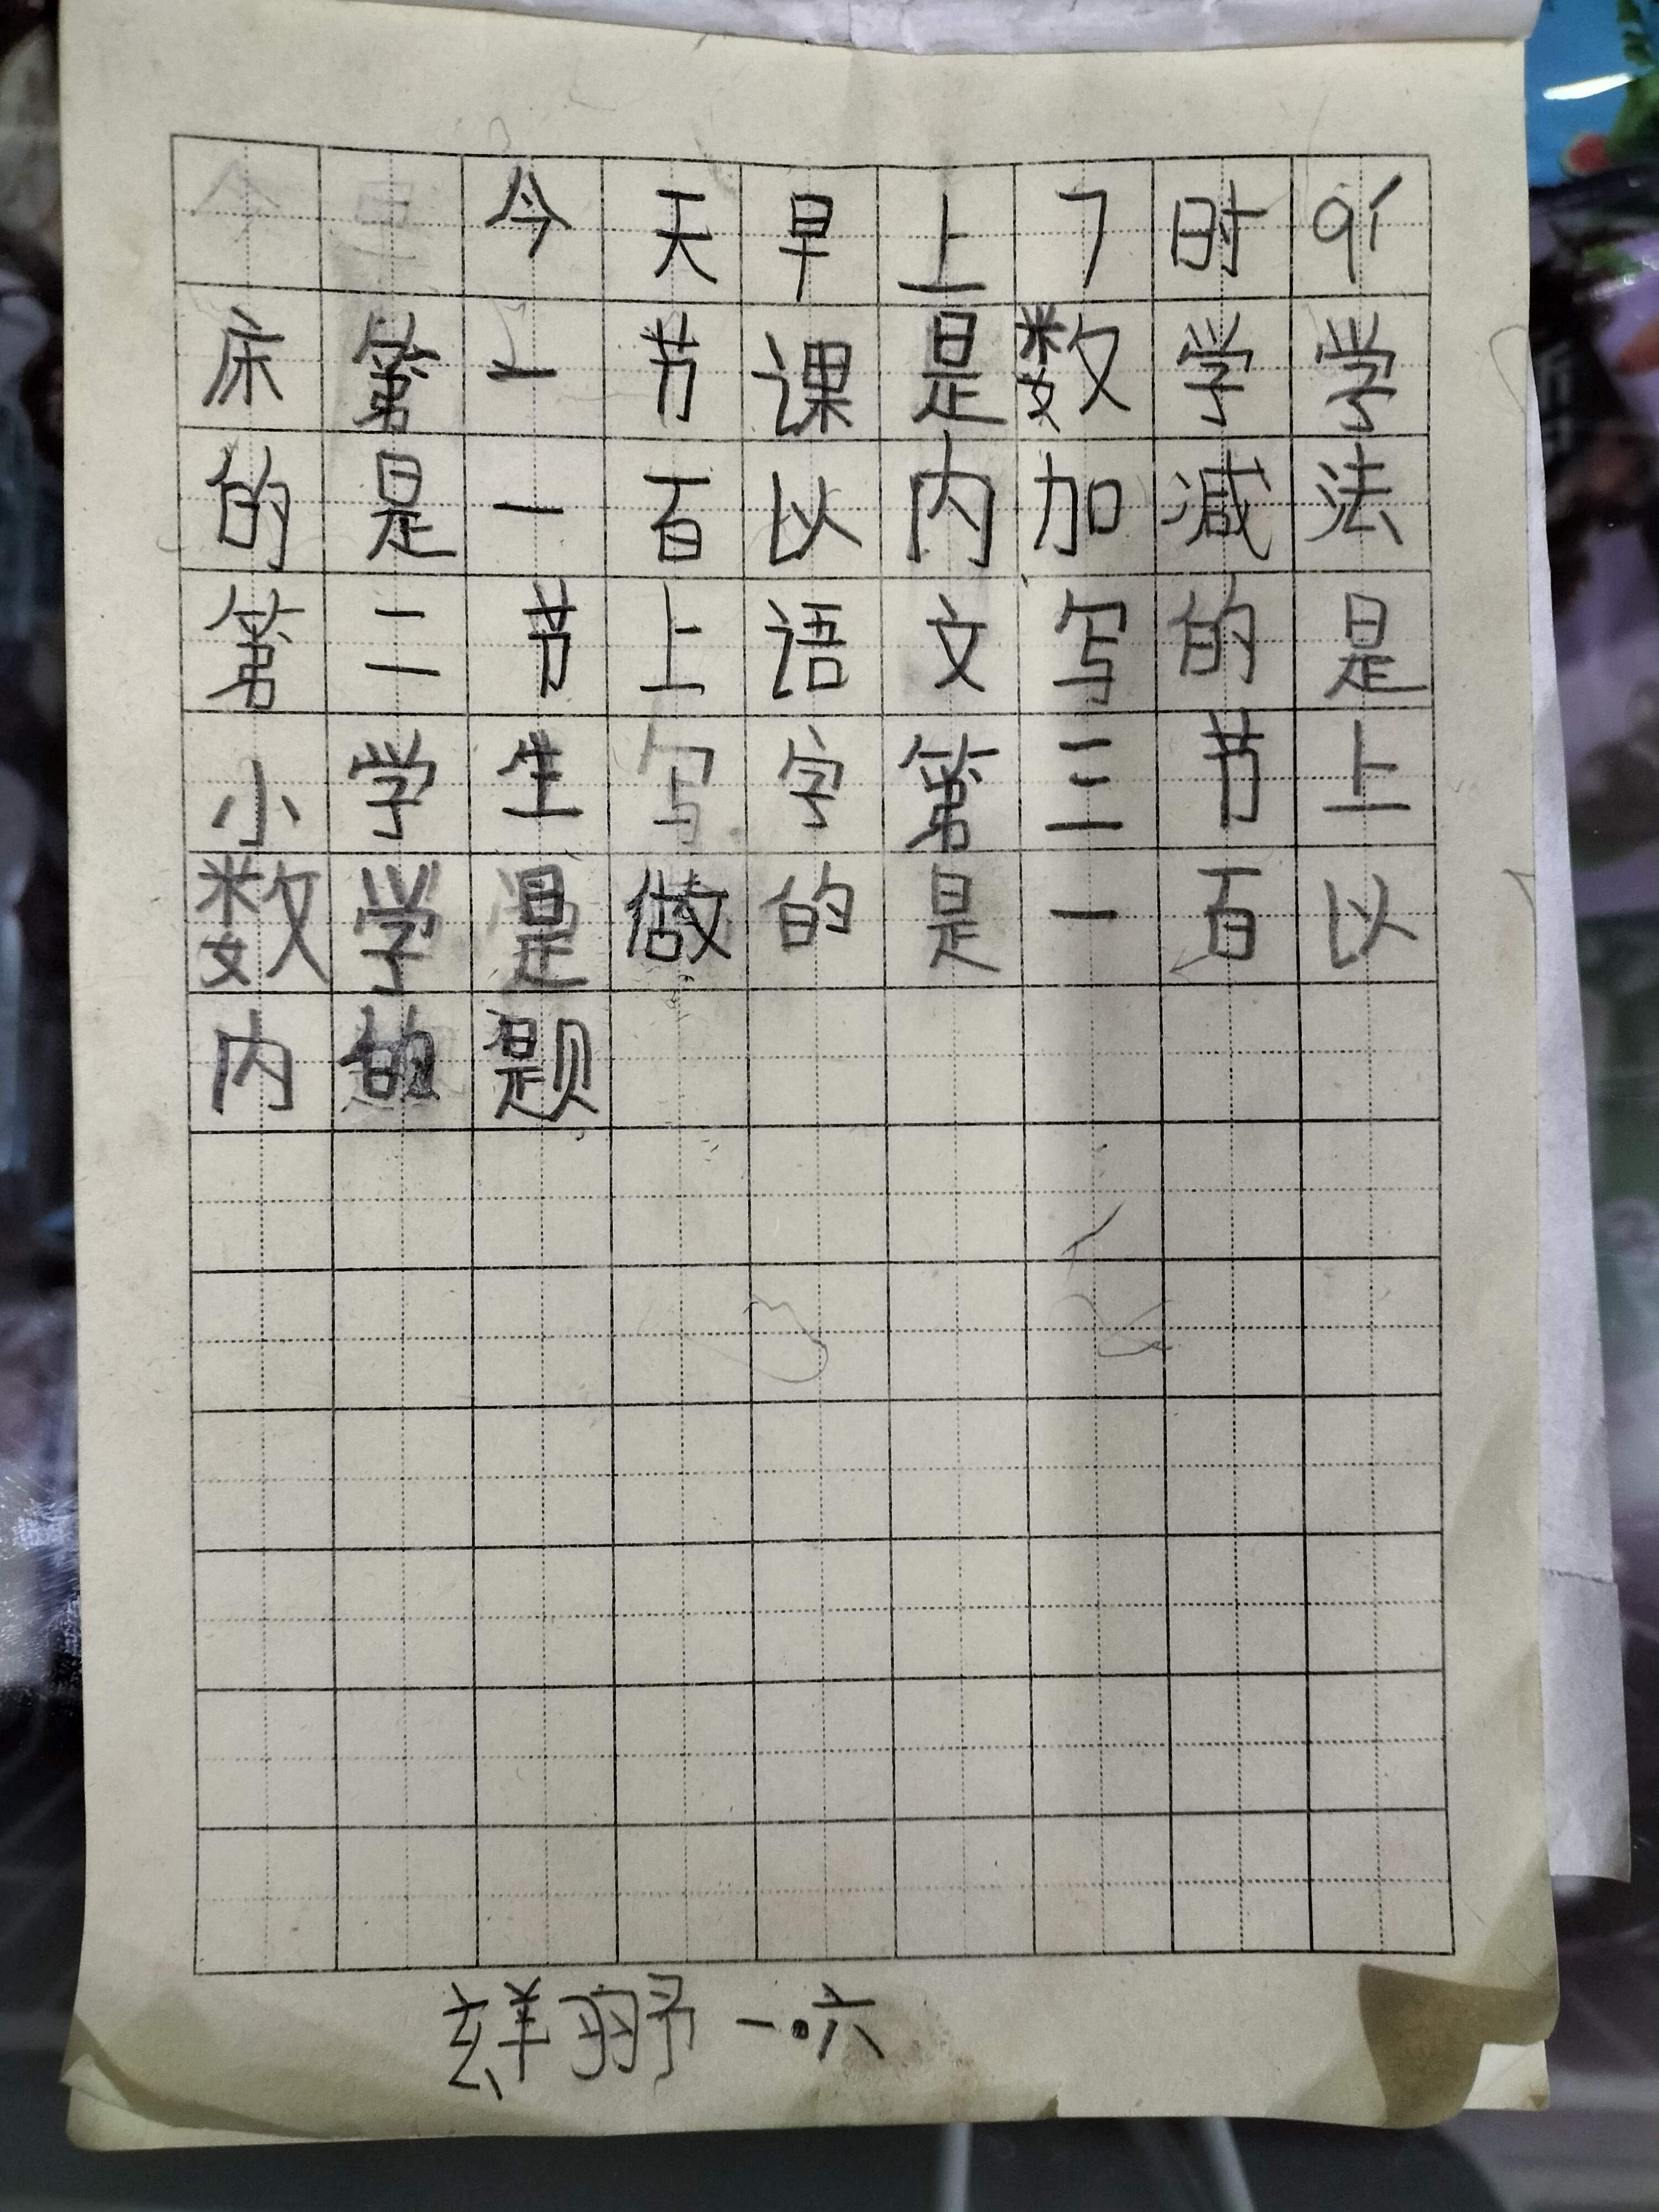 今天早上7时qǐ
床第一节课是数学学
的是一百以内加减法
第二节上语文写的是
小学生写字第三节上
数学是做的是一百以
内的题
一.六